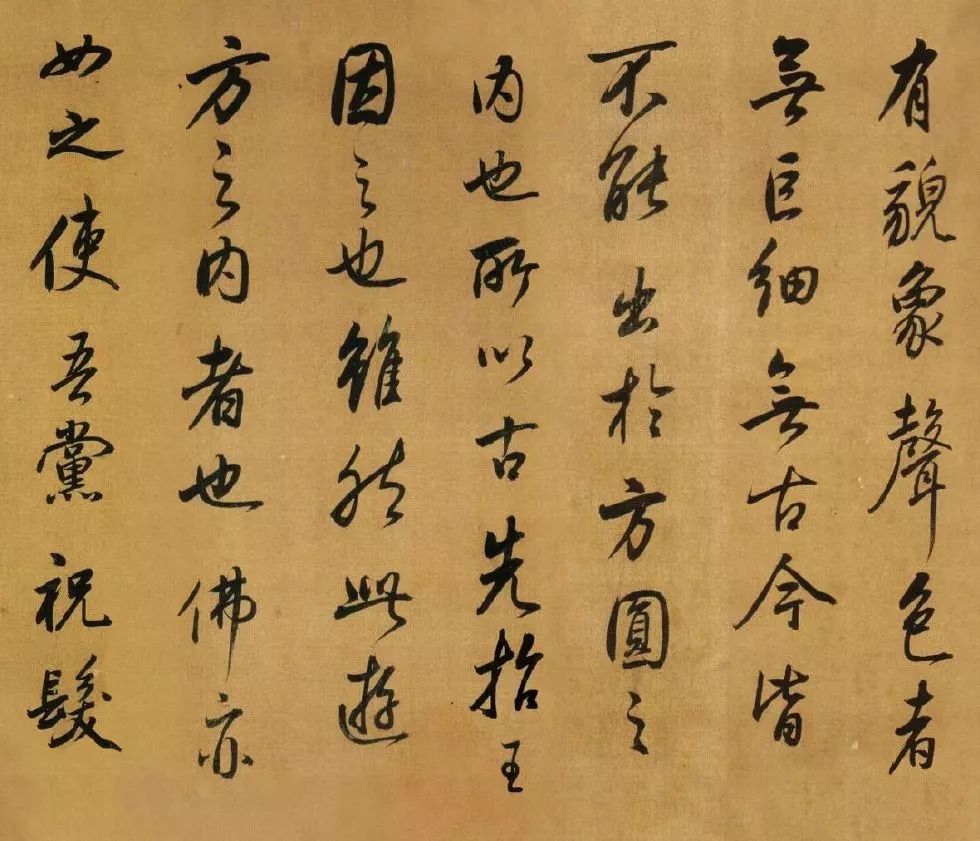 有貌象聲色者
無巨細無古今皆
不能出於方圓之
内也所以古先哲王
因之也雖然此遊
方之内者也佛亦
如之使吾黨祝髮